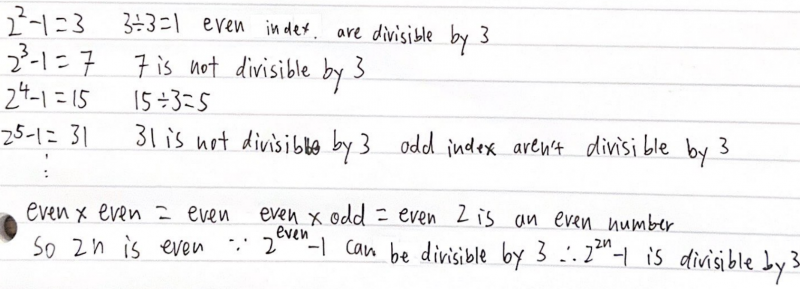 2²-1=3 3÷3=1 even index. are divisible by 3
2³-1=7 7 is not divisible by 3
2⁴-1=15 15÷3=5
2⁵-1=31 31 is not divisible by 3 odd index aren't divisible by 3
⋮
even x even = even even x odd = even 2 is an even number
So 2n is even ∵ 2^even-1 can be divisible by 3 ∴ 2^2n-1 is divisible by 3